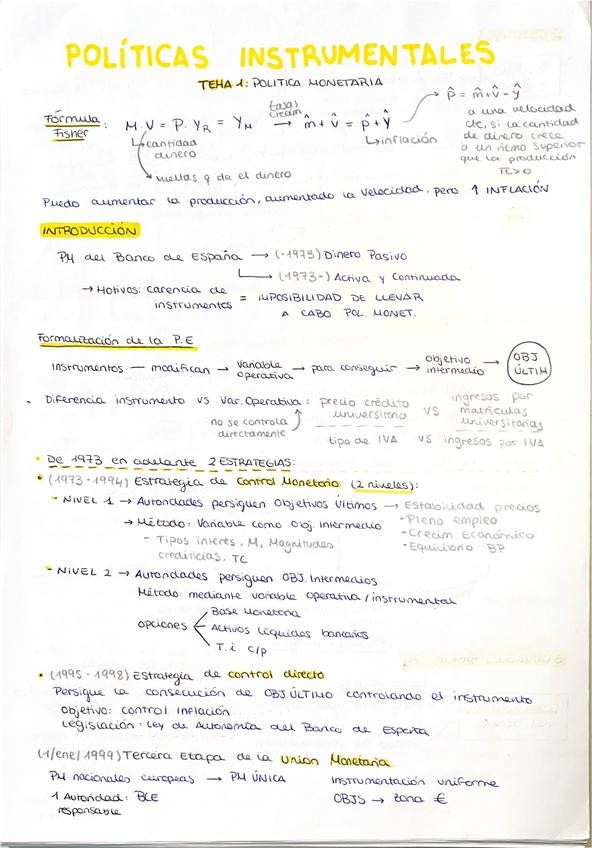 POLÍTICAS INSTRUMENTALES
TEMA 1: POLITICA MONETARIA
Fórmula Fisher: M.V = P. Y_R = Y_M → tasas crecim m̂ + v̂ = p̂ + ŷ → p̂ = m̂ + v̂ - ŷ
↳ cantidad dinero
↘ vueltas q da el dinero
↳ inflación
a una velocidad
cte, si la cantidad
de dinero crece
a un ritmo superior
que la producción
π>0
Puedo aumentar la producción, aumentado la velocidad, pero ↑ INFLACIÓN
INTRODUCCIÓN
PM del Banco de España → (-1973) Dinero Pasivo
↳ (1973-) Activa y Continuada
→ Motivos: carencia de instrumentos = IMPOSIBILIDAD DE LLEVAR
A CABO POL. MONET.
Formalización de la P.E
Instrumentos — modifican → Variable operativa → para conseguir → Objetivo intermedio → OBJ ÚLTIM
Diferencia instrumento vs Var. Operativa: precio crédito universitario vs ingresos por matrículas universitarias
no se controla directamente
tipo de IVA vs ingresos por IVA
• De 1973 en adelante 2 ESTRATEGIAS:
• (1973-1994) Estrategia de Control Monetario (2 niveles):
- NIVEL 1 → Autoridades persiguen Objetivos Últimos → Estabilidad precios
- Pleno empleo
- Crecim. Económico
- Equilibrio BP
→ Método: Variable como Obj. Intermedio
- Tipos interes, M, Magnitudes
crediticias, TC
- NIVEL 2 → Autoridades persiguen OBJ. Intermedios
Método: mediante variable operativa / instrumental
opciones
Base Monetaria
Activos líquidos bancarios
T.i c/p
• (1995-1998) Estrategia de control directo
Persigue la consecución de OBJ.ÚLTIMO controlando el instrumento
Objetivo: control inflación
Legislación: Ley de Autonomía del Banco de España
(1/ene/1999) Tercera Etapa de la Union Monetaria
PM nacionales europeas → PM ÚNICA
Instrumentación uniforme
1 Autoridad: BCE
responsable
OBJS → zona €